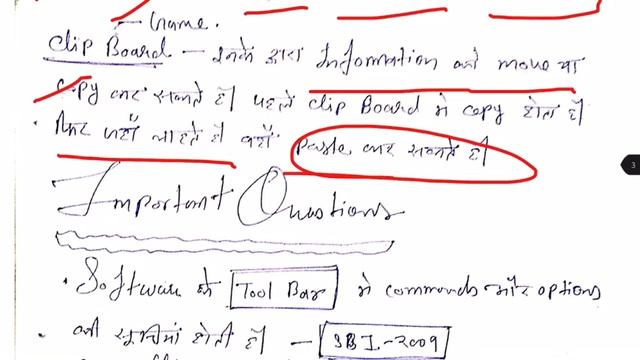 name.
Clip Board – इनके द्वारा Information को move या
Copy कर सकते हैं। पहले Clip Board मे copy होता है
फिर जहाँ चाहते हैं वहाँ Paste कर सकते हैं।
Important Questions
• Software के Tool Bar मे commands और options
की सूचियां होती हैं। – SBI-2009
3